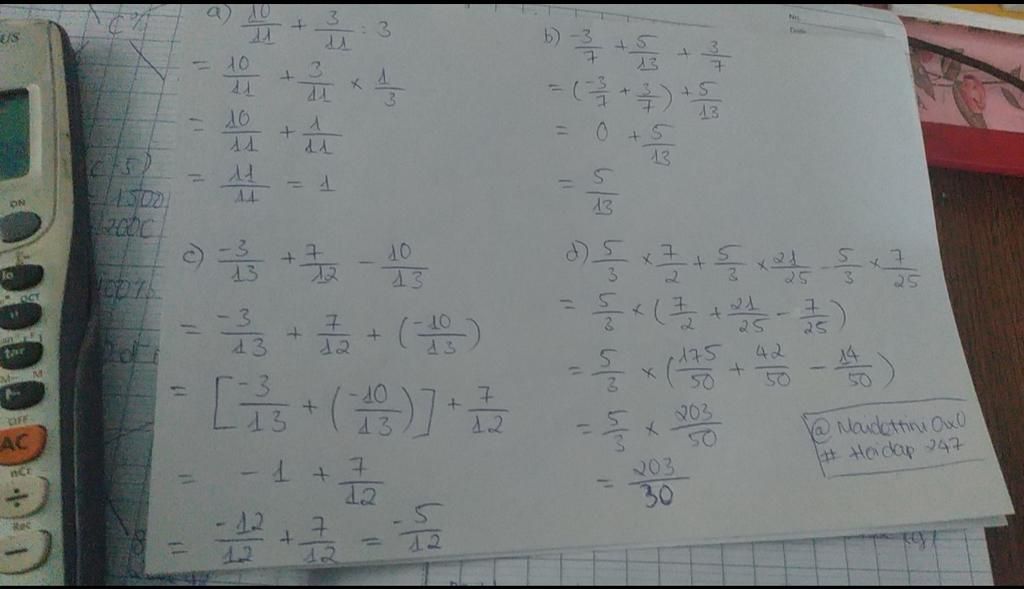 a) 10/11 + 3/11 : 3
= 10/11 + 3/11 × 1/3
= 10/11 + 1/11
= 11/11 = 1
b) -3/7 + 5/13 + 3/7
= (-3/7 + 3/7) + 5/13
= 0 + 5/13
= 5/13
c) -3/13 + 7/12 - 10/13
= -3/13 + 7/12 + (-10/13)
= [-3/13 + (-10/13)] + 7/12
= -1 + 7/12
= -12/12 + 7/12 = -5/12
d) 5/3 × 7/2 + 5/3 × 21/25 - 5/3 × 7/25
= 5/3 × (7/2 + 21/25 - 7/25)
= 5/3 × (175/50 + 42/50 - 14/50)
= 5/3 × 203/50
= 203/30
# Hoidap 247
ON
OFF
AC
÷
Rec
−